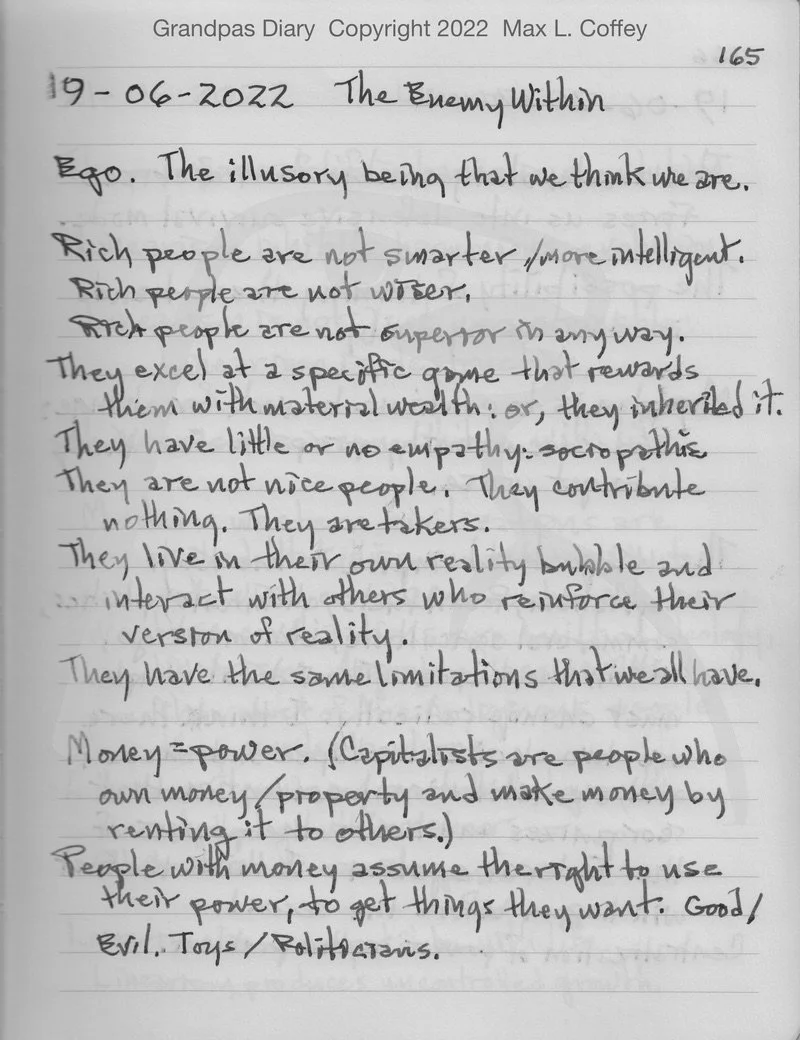 Grandpas Diary Copyright 2022 Max L. Coffey
165
19-06-2022 The Enemy Within
Ego. The illusory being that we think we are.
Rich people are not smarter /more intelligent.
Rich people are not wiser.
Rich people are not superior in any way.
They excel at a specific game that rewards
them with material wealth: or, they inherited it.
They have little or no empathy: sociopathic
They are not nice people. They contribute
nothing. They are takers.
They live in their own reality bubble and
interact with others who reinforce their
version of reality.
They have the same limitations that we all have.
Money = power. (Capitalists are people who
own money/property and make money by
renting it to others.)
People with money assume the right to use
their power, to get things they want. Good/
Evil. Toys / Politicians.